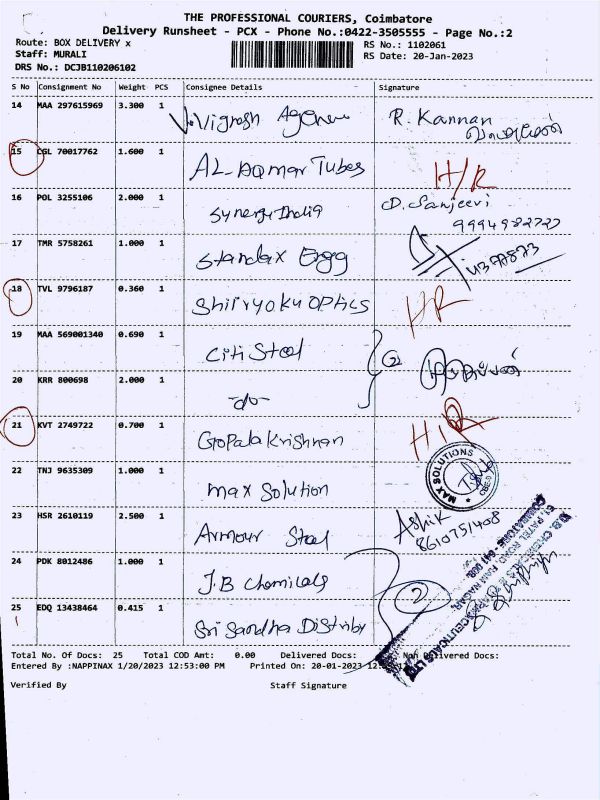 THE PROFESSIONAL COURIERS, Coimbatore
Delivery Runsheet - PCX - Phone No.:0422-3505555 - Page No.:2
Route: BOX DELIVERY x
RS No.: 1102061
Staff: MURALI
RS Date: 20-Jan-2023
DRS No.: DCJB110206102
S No Consignment No Weight PCS Consignee Details Signature
14 MAA 297615969 3.300 1 R. Kannan
15 CGL 70017762 1.600 1 AL-AQmar Tubes H/R
16 POL 3255106 2.000 1 Synergy India D. Sanjeevi
9994982727
17 TMR 5758261 1.000 1 Standax Engg
18 TVL 9796187 0.360 1 OPtics HR
19 MAA 569001340 0.690 1 Citi Steel 2
20 KRR 800698 2.000 1 -do-
21 KVT 2749722 0.700 1 Gopala Krishnan H/R
22 TNJ 9635309 1.000 1 max Solution MAX SOLUTIONS
23 HSR 2610119 2.500 1 Armour Steel Ashik
8610751408
24 PDK 8012486 1.000 1 J.B Chemicals 2
25 EDQ 13438464 0.415 1 Sri
Total No. Of Docs: 25 Total COD Amt: 0.00 Delivered Docs: Non Delivered Docs:
Entered By :NAPPINAX 1/20/2023 12:53:00 PM Printed On: 20-01-2023
Verified By Staff Signature